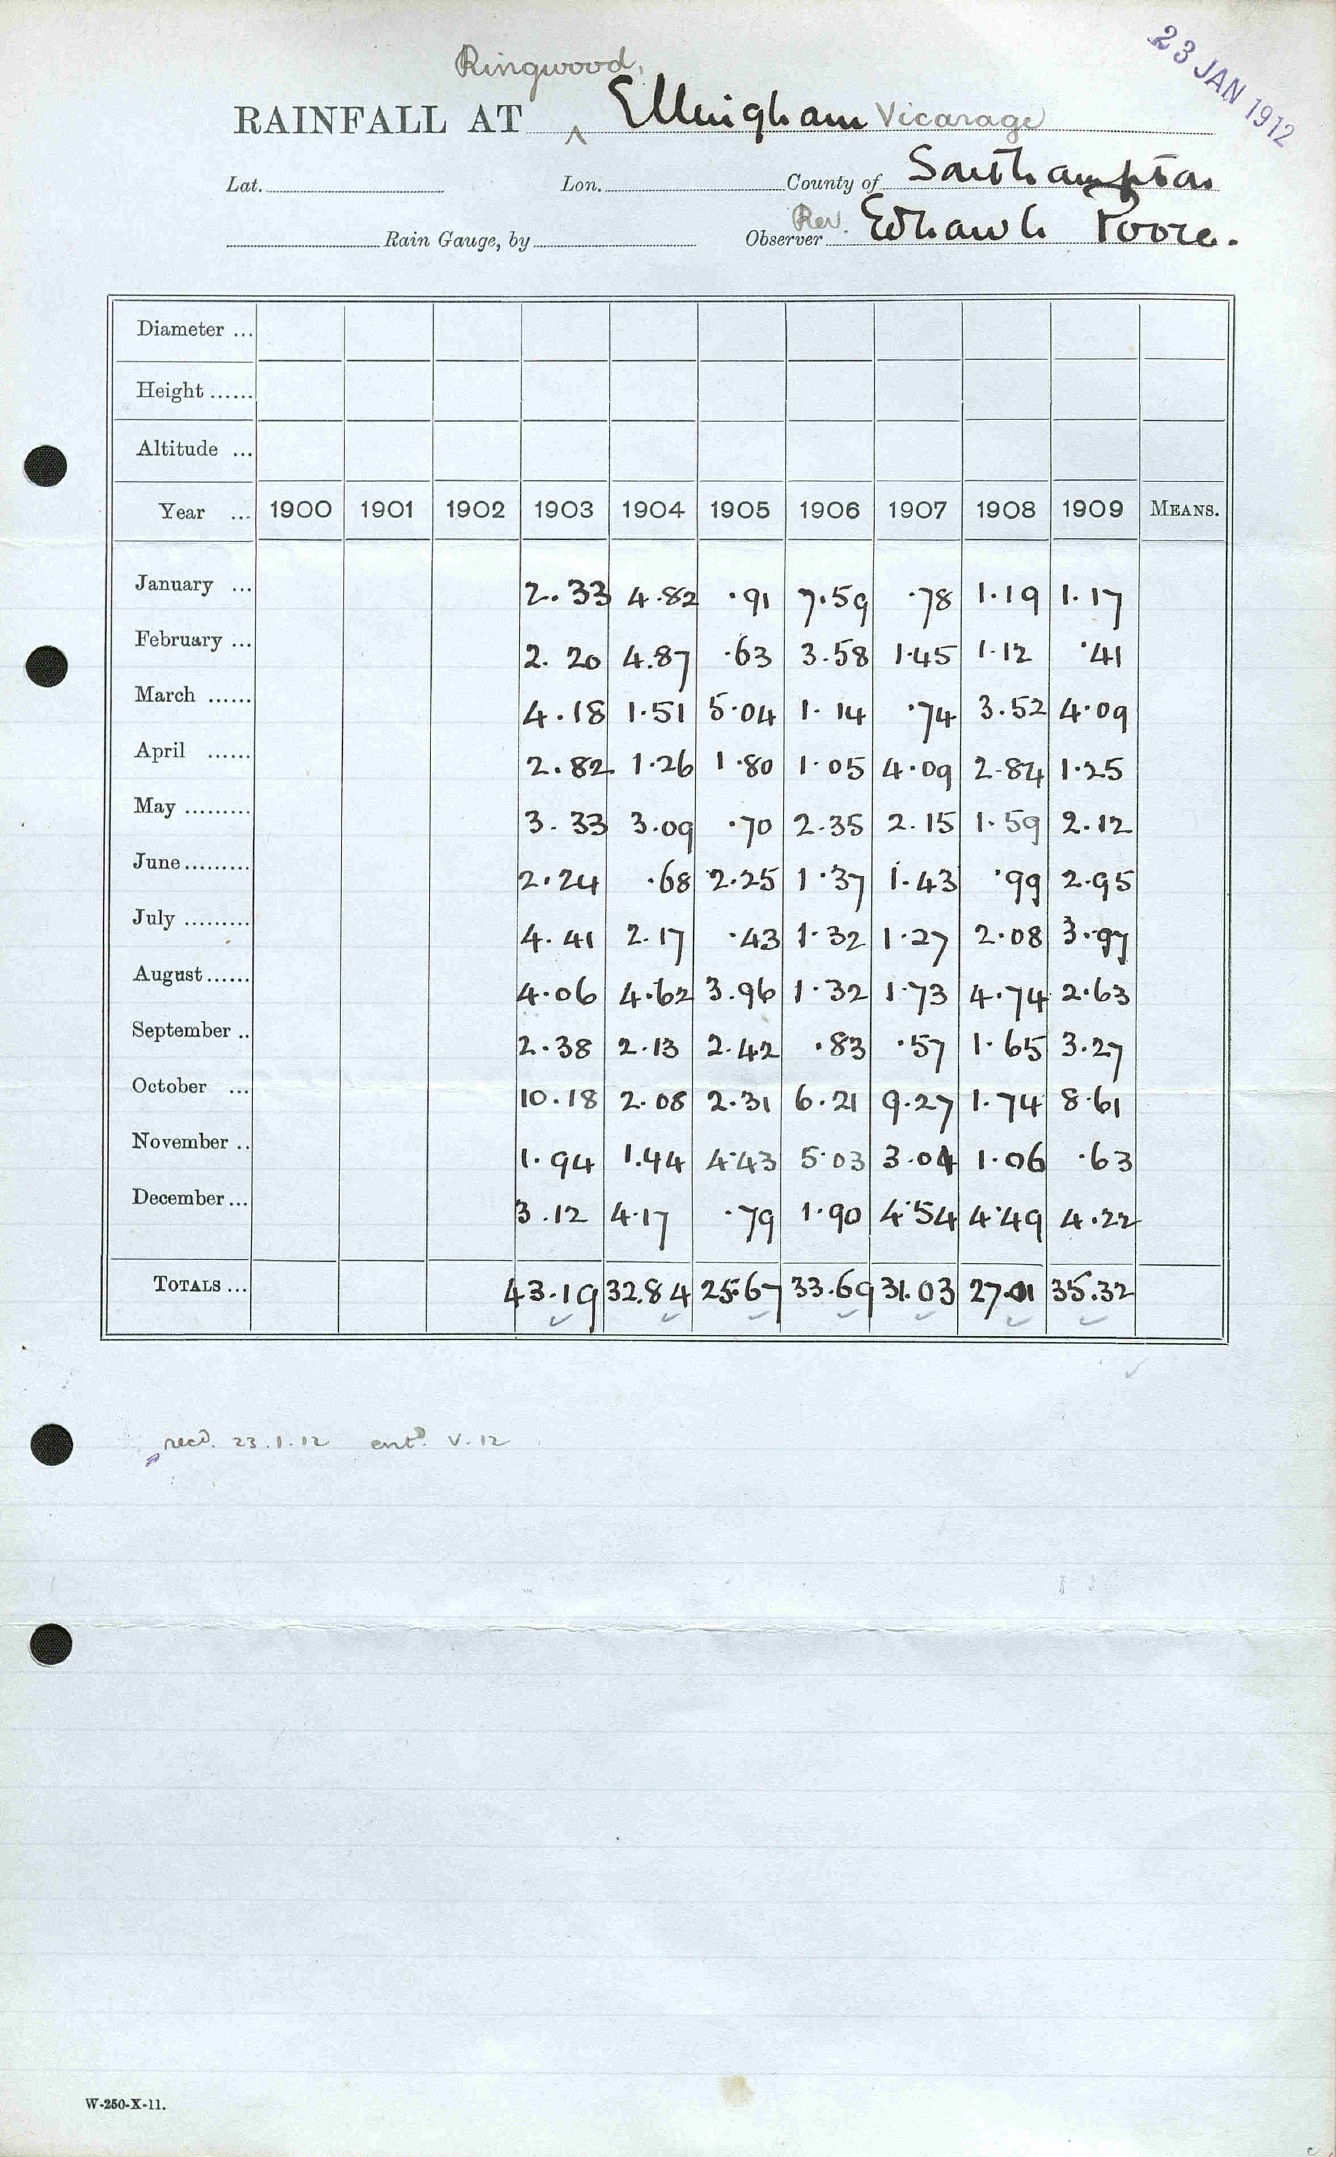 23 JAN 1912
Ringwood,
RAINFALL AT ^ Ellingham Vicarage
Lat. Lon. County of Southampton
Rain Gauge, by Observer Rev. Poore.
Diameter ...
Height ......
Altitude ...
Year ... 1900 1901 1902 1903 1904 1905 1906 1907 1908 1909 MEANS.
January ... 2.33 4.82 .91 7.59 .78 1.19 1.17
February ... 2.20 4.87 .63 3.58 1.45 1.12 .41
March ...... 4.18 1.51 5.04 1.14 .74 3.52 4.09
April ...... 2.82 1.26 1.80 1.05 4.09 2.84 1.25
May ......... 3.33 3.09 .70 2.35 2.15 1.59 2.12
June ......... 2.24 .68 2.25 1.37 1.43 .99 2.95
July ......... 4.41 2.17 .43 1.32 1.27 2.08 3.97
August ...... 4.06 4.62 3.96 1.32 1.73 4.74 2.63
September .. 2.38 2.13 2.42 .83 .57 1.65 3.27
October ... 10.18 2.08 2.31 6.21 9.27 1.74 8.61
November .. 1.94 1.44 4.43 5.03 3.04 1.06 .63
December ... 3.12 4.17 .79 1.90 4.54 4.49 4.22
TOTALS ... 43.19 32.84 25.67 33.69 31.03 27.01 35.32
recd. 23.1.12 entd. V.12
W-250-X-11.